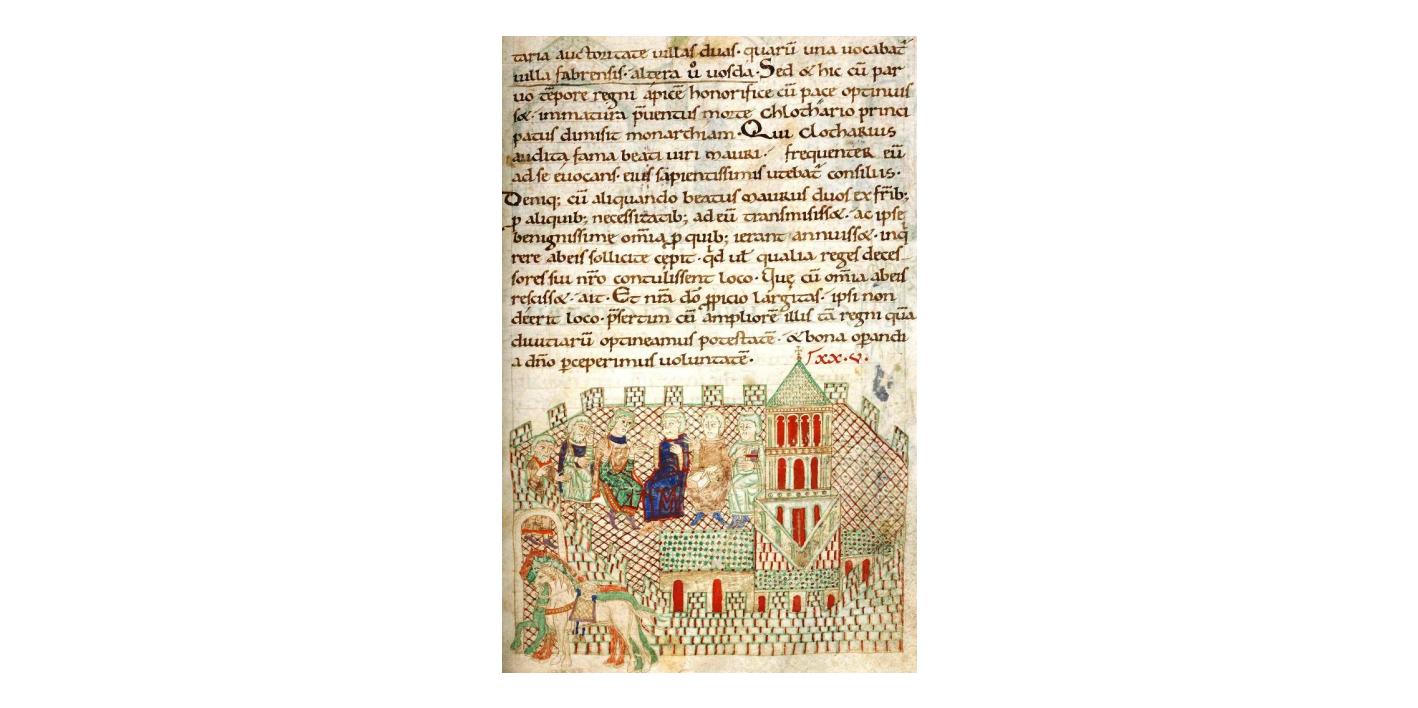 taria auctoritate uillas duas. quarū una uocabat̄
uilla fabrensis. altera ů uosda. Sed & hic cū par
uo tēpore regni apicē honorifice cū pace optinuis
s&. immatura p̄uentus morte Chlothario princi
patus dimisit monarchiam. Qui Clotharius
audita fama beati uiri MAURI. frequenter eū
ad se euocans. eius sapientissimis utebat̄ consiliis.
Deniq; cū aliquando beatus MAURUS duos ex fr̄ib;
ꝑ aliquib; necessitatib; ad eū transmisiss&. ac ipse
benignissime om̄ia ꝓ quib; ierant annuiss&. inq
rere ab eis sollicite cępit. qd ut qualia reges deces
sores sui nr̄o contulissent loco. Quę cū om̄ia ab eis
resciss&. ait. Et nr̄a dō ꝓpicio largitas. ipsi non
deerit loco. p̄sertim cū ampliorē illis tā regni quā
diuitiarū optineamus potestatē. & bona oꝑandi
a dn̄o ꝑceperimus uoluntatē.